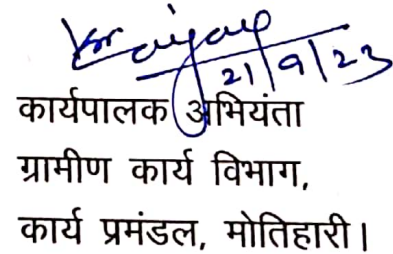 21/9/23
कार्यपालक अभियंता
ग्रामीण कार्य विभाग,
कार्य प्रमंडल, मोतिहारी।